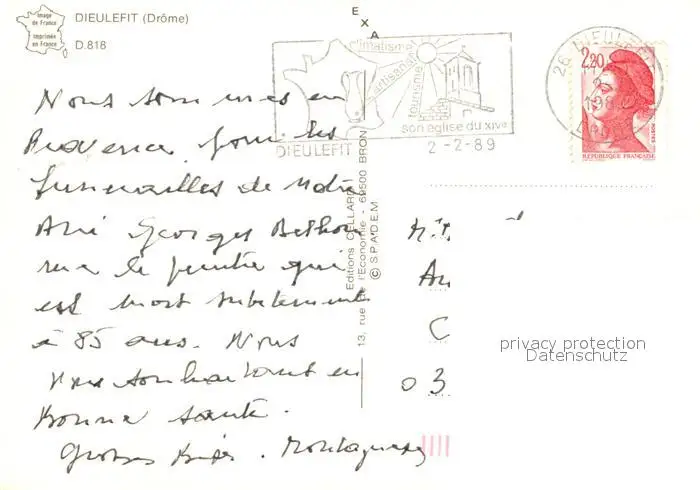 Image
de France
Imprimée
en France
DIEULEFIT (Drôme)
D.818
E
X
A
climatisme
artisanat
tourisme
son église du XIVe
DIEULEFIT
2-2-89
26 DIEULEFIT
DROME
2,20
POSTES
REPUBLIQUE FRANÇAISE
Nous sommes en
Provence pour les
funérailles de notre
Ami Georges
le peintre qui
est mort subitement
à 85 ans. Nous
vous souhaitons en
Bonne santé.
Grosses Bises.
Editions CELLARD
13, rue de l'Economie - 69500 BRON
© S.P.A.D.E.M
Au
C
03
privacy protection
Datenschutz